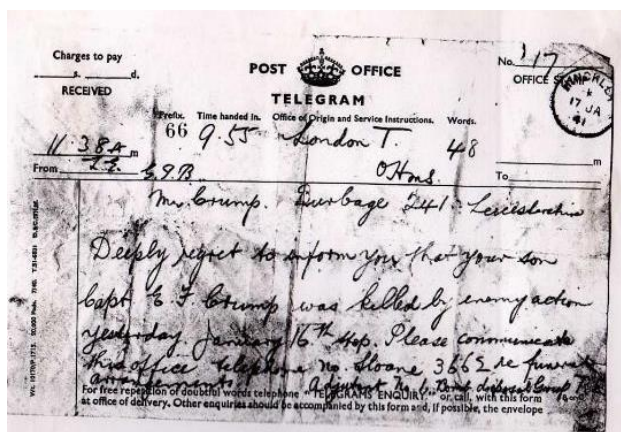 Charges to pay
s. d.
RECEIVED
POST OFFICE
TELEGRAM
No. 117
OFFICE
HINCKLEY
17 JA
41
Prefix. Time handed in. Office of Origin and Service Instructions. Words.
66 9.55 London T. 48
11.38A m
From T.S. OHMS. To m
Mr. Crump. Burbage 241 Leicestershire
Deeply regret to inform you that your son
Capt E. F. Crump was killed by enemy action
yesterday. January 16th stop. Please communicate
this office telephone No. Sloane 3662 re funeral
arrangements. Adjutant No. 6 Bomb disposal Group
For free repetition of doubtful words telephone "TELEGRAMS ENQUIRY" or call, with this form
at office of delivery. Other enquiries should be accompanied by this form and, if possible, the envelope